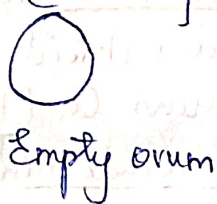 Empty ovum